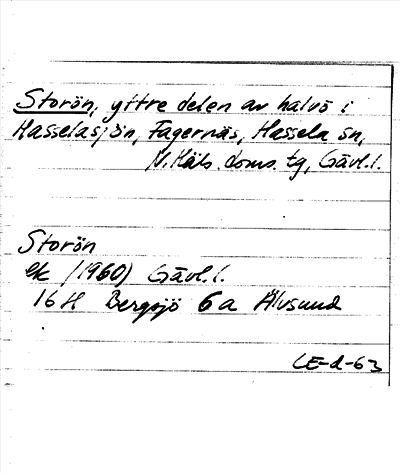 Storön, yttre delen av halvö i
Hasselasjön, Fagernäs, Hassela sn,
N. Häls. doms. tg, Gävl. l.
Storön
ek (1960) Gävl. l.
16H Bergsjö 6a Älvsund
CE-d-63